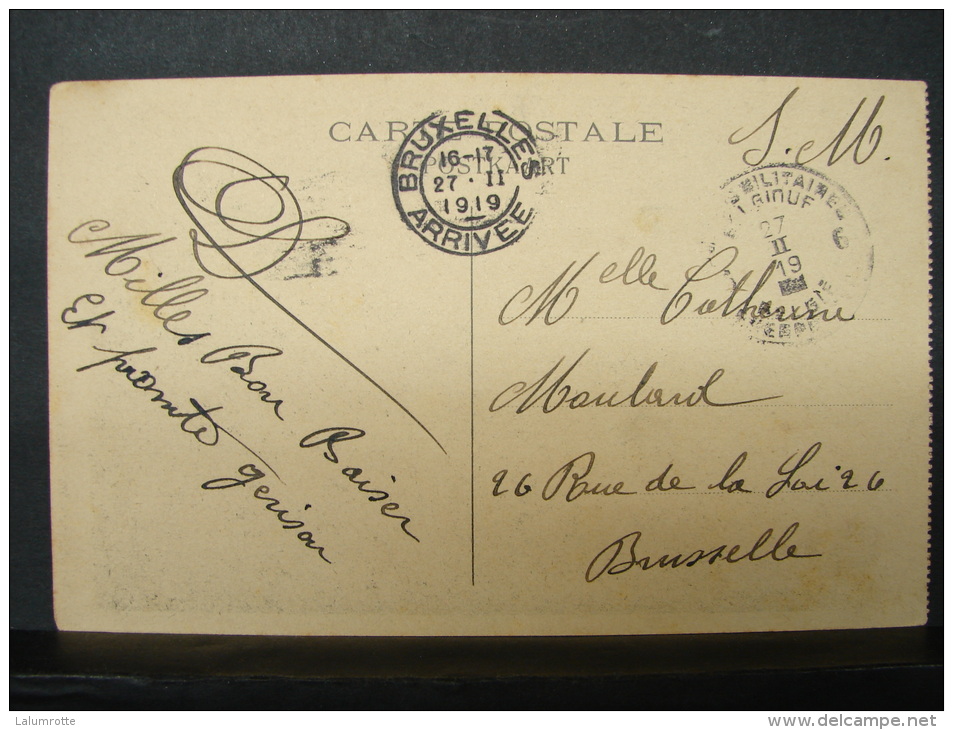 CARTE POSTALE
POSTKAART
S. M.
BRUXELLES
16-17
27 · II
1919
ARRIVEE
MILITAIRE
27
II
19
6
Milles Bon Baiser
Et promte gerison
Melle Catherine
Moulard
26 Rue de la Loi 26
Brusselle
Lalumrotte
www.delcampe.net